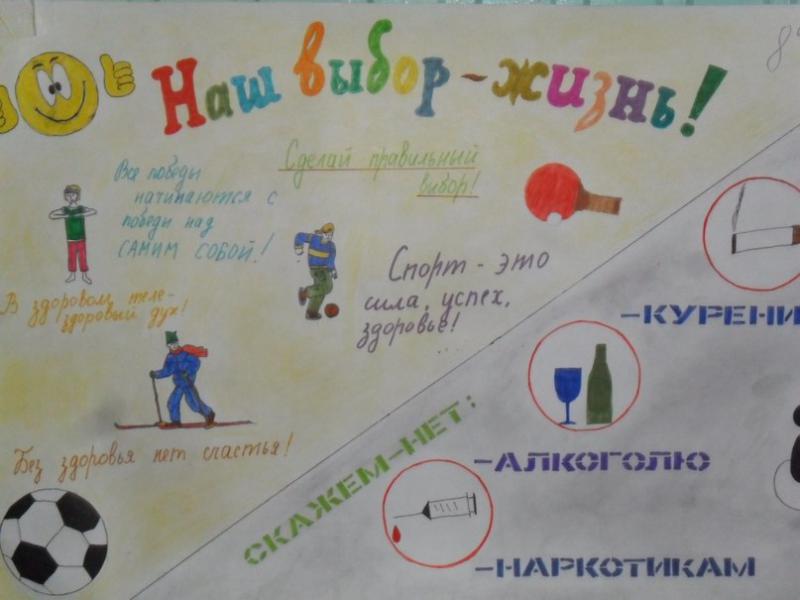 Наш выбор - жизнь!
Все победы
начинаются с
победы над
САМИМ СОБОЙ!
Сделай правильный
выбор!
В здоровом теле-
здоровый дух!
Спорт - это
сила, успех,
здоровье!
Без здоровья нет счастья!
СКАЖЕМ-НЕТ:
-КУРЕНИ
-АЛКОГОЛЮ
-НАРКОТИКАМ